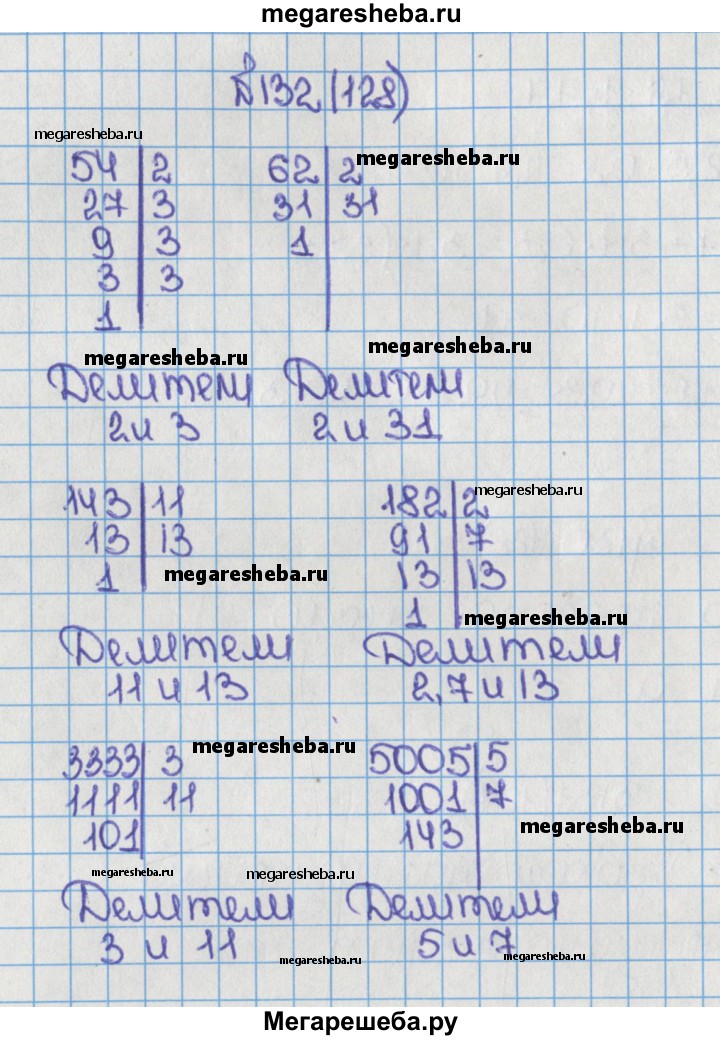 megaresheba.ru
№132 (128)
megaresheba.ru
54 | 2 62 | 2 megaresheba.ru
27 | 3 31 | 31
9 | 3 1
3 | 3
1
megaresheba.ru megaresheba.ru
Делители Делители
2 и 3 2 и 31
143 | 11 182 | 2 megaresheba.ru
13 | 13 91 | 7
1 megaresheba.ru 13 | 13
1 megaresheba.ru
Делители Делители
11 и 13 2,7 и 13
3333 | 3 megaresheba.ru 5005 | 5
1111 | 11 1001 | 7
101 143 megaresheba.ru
megaresheba.ru megaresheba.ru
Делители Делители
3 и 11 5 и 7
megaresheba.ru megaresheba.ru
Мегарешеба.ру